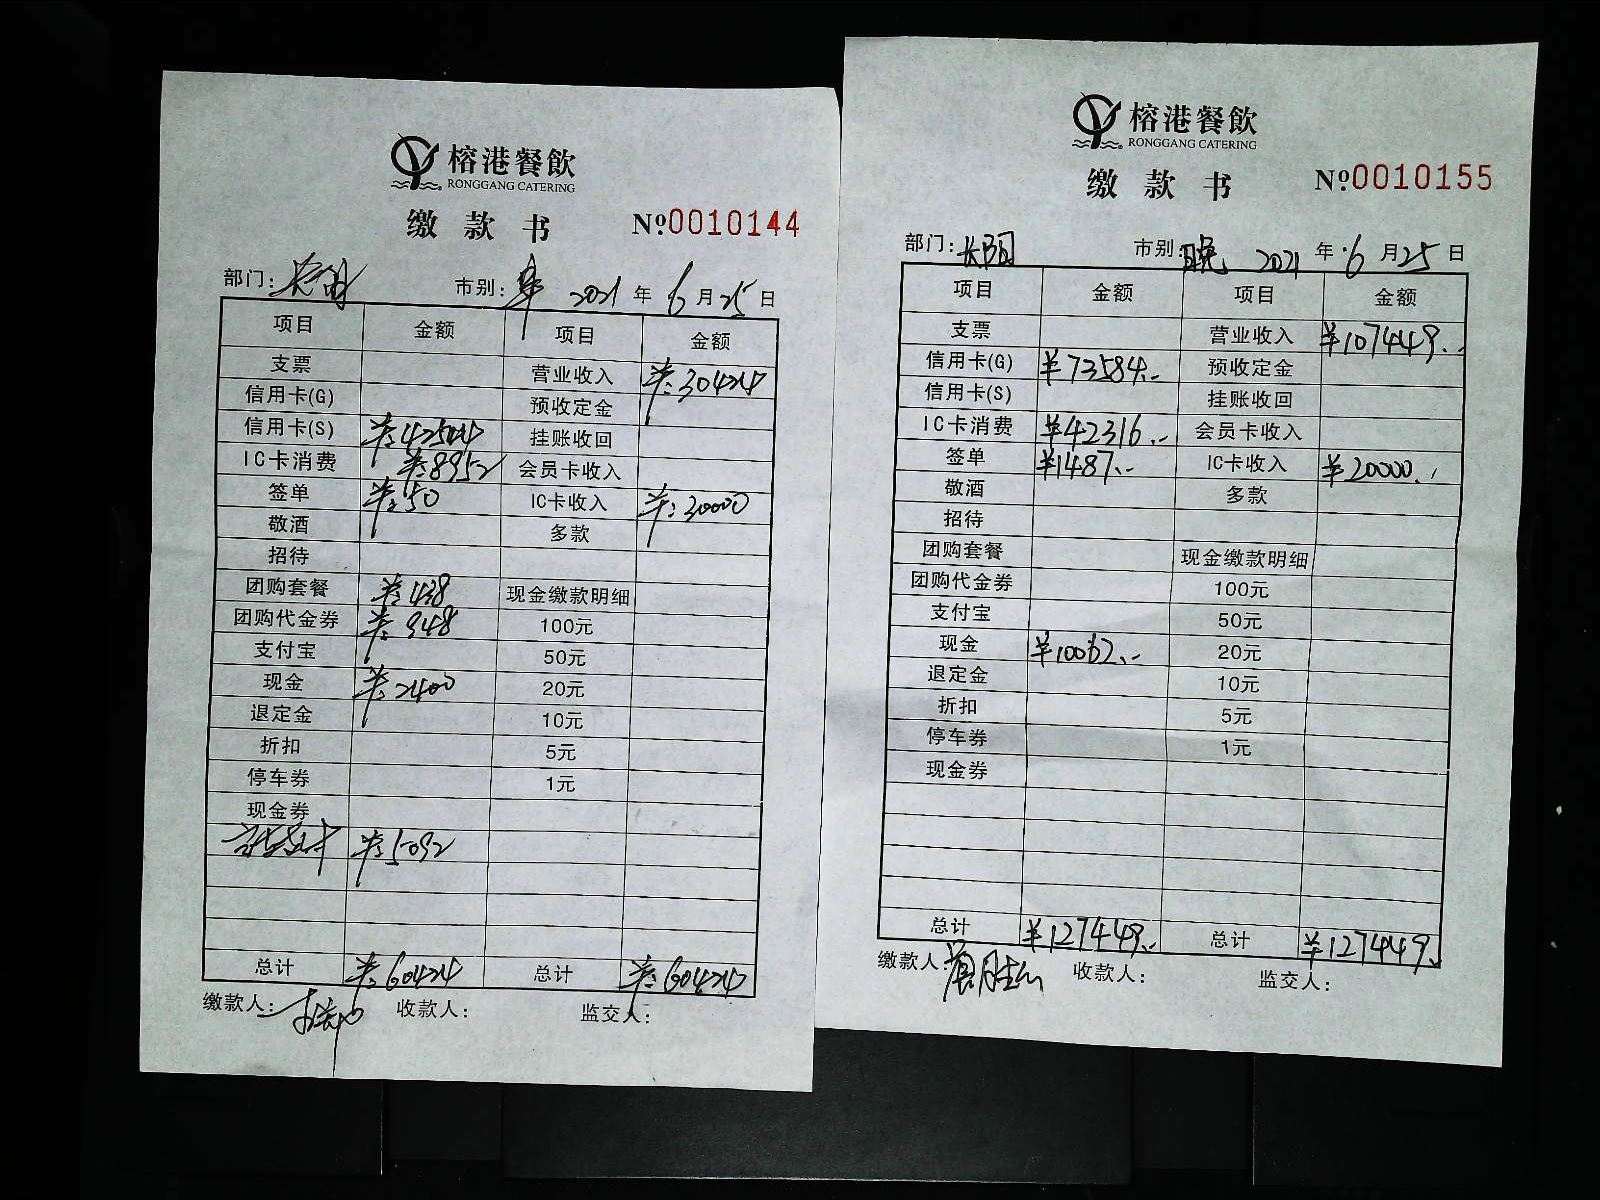 榕港餐飲
RONGGANG CATERING
缴款书 №0010144
部门: 市别: 早 2021 年 6 月 25 日
项目 金额 项目 金额
支票 营业收入 ¥:30424
信用卡(G) 预收定金
信用卡(S) ¥:42504 挂账收回
IC卡消费 ¥:8952 会员卡收入
签单 ¥:50 IC卡收入 ¥:30000
敬酒 多款
招待
团购套餐 ¥:438 现金缴款明细
团购代金券 ¥:948 100元
支付宝 50元
现金 ¥:2400 20元
退定金 10元
折扣 5元
停车券 1元
现金券
¥:5092
总计 ¥:60424 总计 ¥:60424
缴款人: 收款人: 监交人:
榕港餐飲
RONGGANG CATERING
缴款书 №0010155
部门: 长阳 市别: 晚 2021 年 6 月 25 日
项目 金额 项目 金额
支票 营业收入 ¥107449.-
信用卡(G) ¥73584.- 预收定金
信用卡(S) 挂账收回
IC卡消费 ¥42316.- 会员卡收入
签单 ¥1487.- IC卡收入 ¥20000.-
敬酒 多款
招待
团购套餐 现金缴款明细
团购代金券 100元
支付宝 50元
现金 ¥10062.- 20元
退定金 10元
折扣 5元
停车券 1元
现金券
总计 ¥127449.- 总计 ¥127449.
缴款人: 收款人: 监交人: